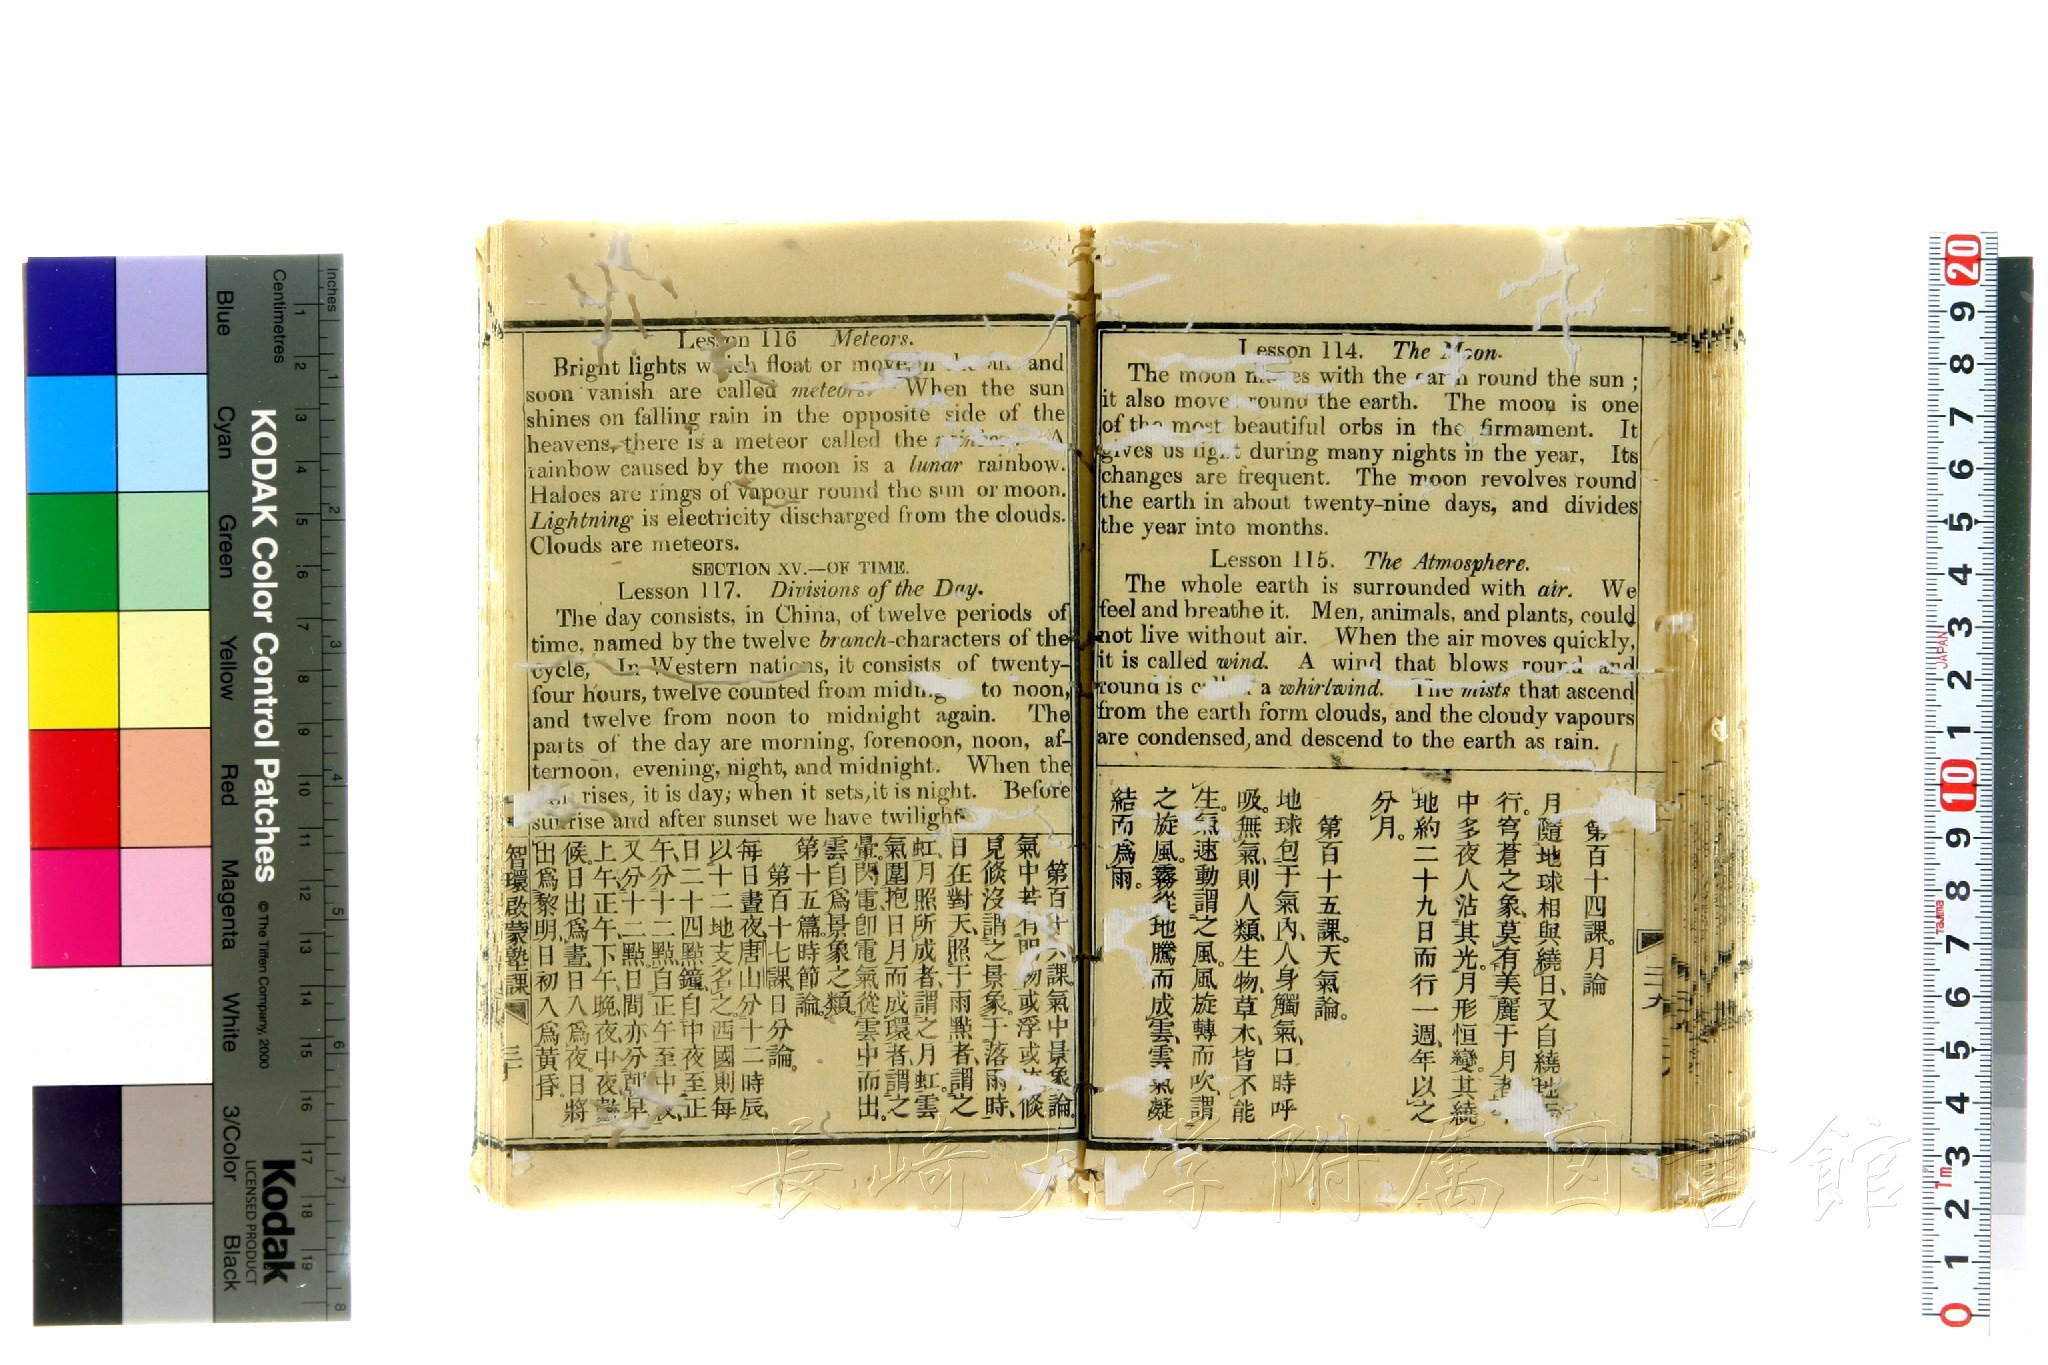 Lesson 114. The Moon.
The moon moves with the earth round the sun ;
it also moves round the earth. The moon is one
of the most beautiful orbs in the firmament. It
gives us light during many nights in the year, Its
changes are frequent. The moon revolves round
the earth in about twenty-nine days, and divides
the year into months.
Lesson 115. The Atmosphere.
The whole earth is surrounded with air. We
feel and breathe it. Men, animals, and plants, could
not live without air. When the air moves quickly,
it is called wind. A wind that blows round and
round is called a whirlwind. The mists that ascend
from the earth form clouds, and the cloudy vapours
are condensed, and descend to the earth as rain.
第百十四課。月論
月隨地球相與繞日、又自繞地而
行。穹蒼之象、莫有美麗于月者
中多夜人沾其光。月形恒變。其繞
地約二十九日而行一週、年以之
分月。
第百十五課。天氣論。
地球包于氣內、人身觸氣、口時呼
吸。無氣、則人類、生物、草木、皆不能
生。氣速動謂之風。風旋轉而吹、謂
之旋風。霧從地騰而成雲、雲氣凝
結而爲雨。
二十九
Lesson 116 Meteors.
Bright lights which float or move in the air and
soon vanish are called meteors. When the sun
shines on falling rain in the opposite side of the
heavens, there is a meteor called the rainbow. A
rainbow caused by the moon is a lunar rainbow.
Haloes are rings of vapour round the sun or moon.
Lightning is electricity discharged from the clouds.
Clouds are meteors.
SECTION XV.—OF TIME.
Lesson 117. Divisions of the Day.
The day consists, in China, of twelve periods of
time, named by the twelve branch-characters of the
cycle, In Western nations, it consists of twenty-
four hours, twelve counted from midnight to noon,
and twelve from noon to midnight again. The
parts of the day are morning, forenoon, noon, af-
ternoon, evening, night, and midnight. When the
rises, it is day; when it sets, it is night. Before
sunrise and after sunset we have twilight.
第百十六課。氣中景象論。
氣中若有明物或浮或 倐
見倐沒、謂之景象。于落雨時、
日在對天、照于雨點者、謂之
虹、月照所成者、謂之月虹。雲
氣圍抱日月而成環者、謂之
暈。閃電、卽電氣從雲中而出。
雲自爲景象之類。
第十五篇。時節論。
第百十七課。日分論。
每日晝夜、唐山分十二時辰、
以十二地支名之。西國則每
日二十四點鐘、自中夜至正
午、分十二點、自正午至中夜、
又分十二點。日間亦分朝早、
上午、正午、下午、晚、夜、中夜、數
候。日出爲晝、日入爲夜。日將
出爲黎明、日初入爲黃昏。
智環啟蒙塾課
三十
長崎大学附属図書館
KODAK Color Control Patches
© The Tiffen Company, 2000
Kodak
LICENSED PRODUCT
Inches
Centimetres
Blue
Cyan
Green
Yellow
Red
Magenta
White
3/Color
Black
1 2 3 4 5 6 7 8 9 10 11 12 13 14 15 16 17 18 19
1 2 3 4 5 6 7 8
20 9 8 7 6 5 4 3 2 1 10 9 8 7 6 5 4 3 2 1 0
JAPAN
1m